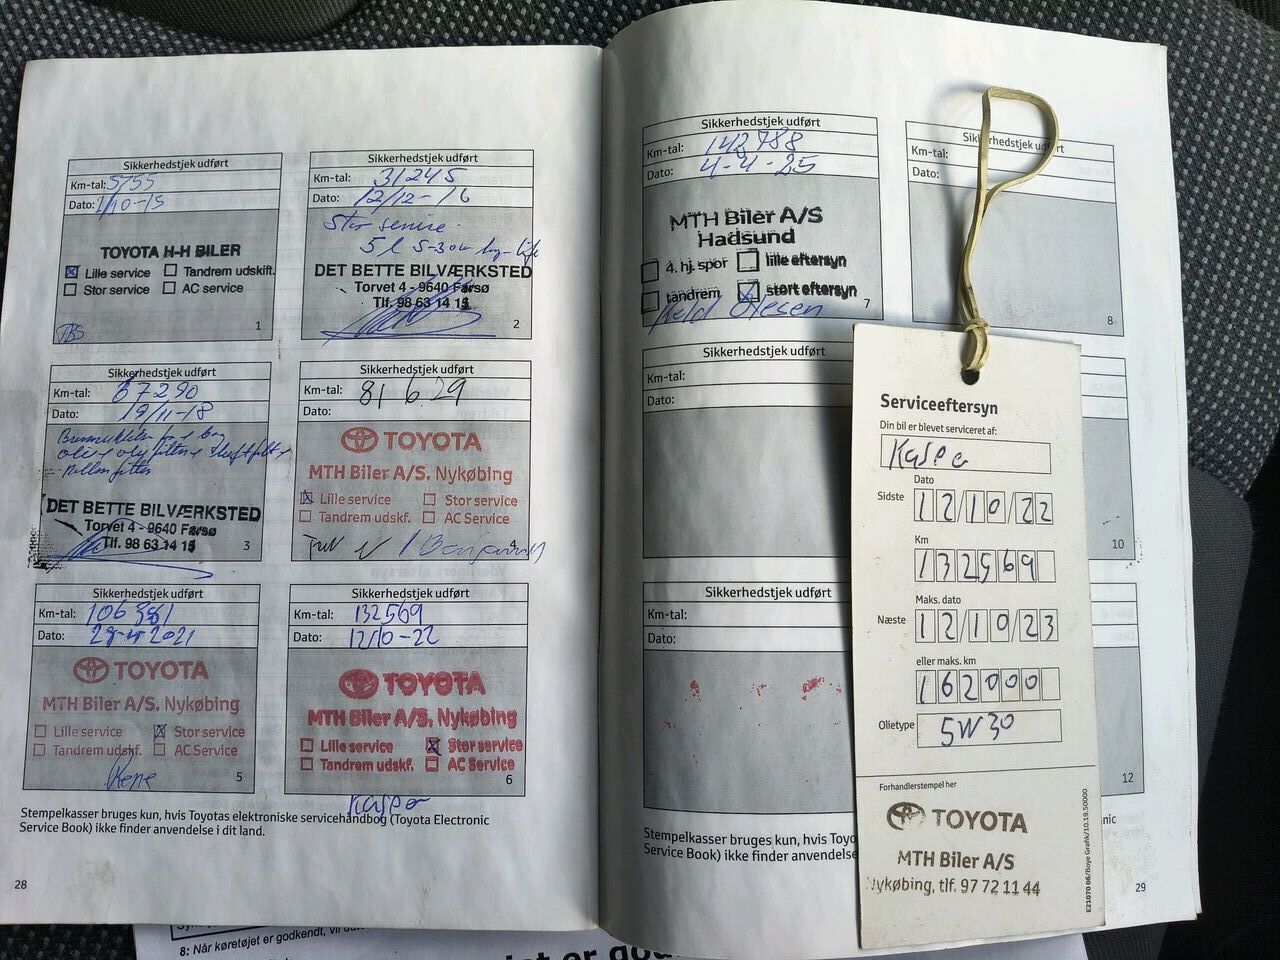 Sikkerhedstjek udført
Km-tal: 5755
Dato: 1/10-15
TOYOTA H-H BILER
☒ Lille service ☐ Tandrem udskift.
☐ Stor service ☐ AC service
1
Sikkerhedstjek udført
Km-tal: 31245
Dato: 12/12-16
Stor service
DET BETTE BILVÆRKSTED
Torvet 4 - 9640 Farsø
Tlf. 98 63 14 15
2
Sikkerhedstjek udført
Km-tal: 57290
Dato: 19/11-18
DET BETTE BILVÆRKSTED
Torvet 4 - 9640 Farsø
Tlf. 98 63 14 15
3
Sikkerhedstjek udført
Km-tal: 81629
Dato:
TOYOTA
MTH Biler A/S. Nykøbing
☒ Lille service ☐ Stor service
☐ Tandrem udskf. ☐ AC Service
4
Sikkerhedstjek udført
Km-tal:
Dato:
TOYOTA
MTH Biler A/S. Nykøbing
☐ Lille service ☒ Stor service
☐ Tandrem udskf. ☐ AC Service
Rene
5
Sikkerhedstjek udført
Km-tal: 132569
Dato: 12/10-22
TOYOTA
MTH Biler A/S. Nykøbing
☐ Lille service ☒ Stor service
☐ Tandrem udskf. ☐ AC Service
6
Kasper
Stempelkasser bruges kun, hvis Toyotas elektroniske servicehåndbog (Toyota Electronic
Service Book) ikke finder anvendelse i dit land.
28
Sikkerhedstjek udført
Km-tal: 142788
Dato: 4-4-25
MTH Biler A/S
Hadsund
☐ 4. hj. spor ☐ lille eftersyn
☐ tandrem ☒ stort eftersyn
Keld Olesen
7
Sikkerhedstjek udført
Km-tal:
Dato:
8
Sikkerhedstjek udført
Km-tal:
Dato:
10
Sikkerhedstjek udført
Km-tal:
Dato:
12
Stempelkasser bruges kun, hvis
Service Book) ikke finder anvendelse
29
Serviceeftersyn
Din bil er blevet serviceret af:
Kasper
Dato
Sidste 12/10/22
Km
132569
Maks. dato
Næste 12/10/23
eller maks. km
162000
Olietype 5W30
Forhandlerstempel her
TOYOTA
MTH Biler A/S
Nykøbing, tlf. 97 72 11 44
E21070 06/Boye Grafik/10.19.50000
8: Når køretøjet er godkendt,